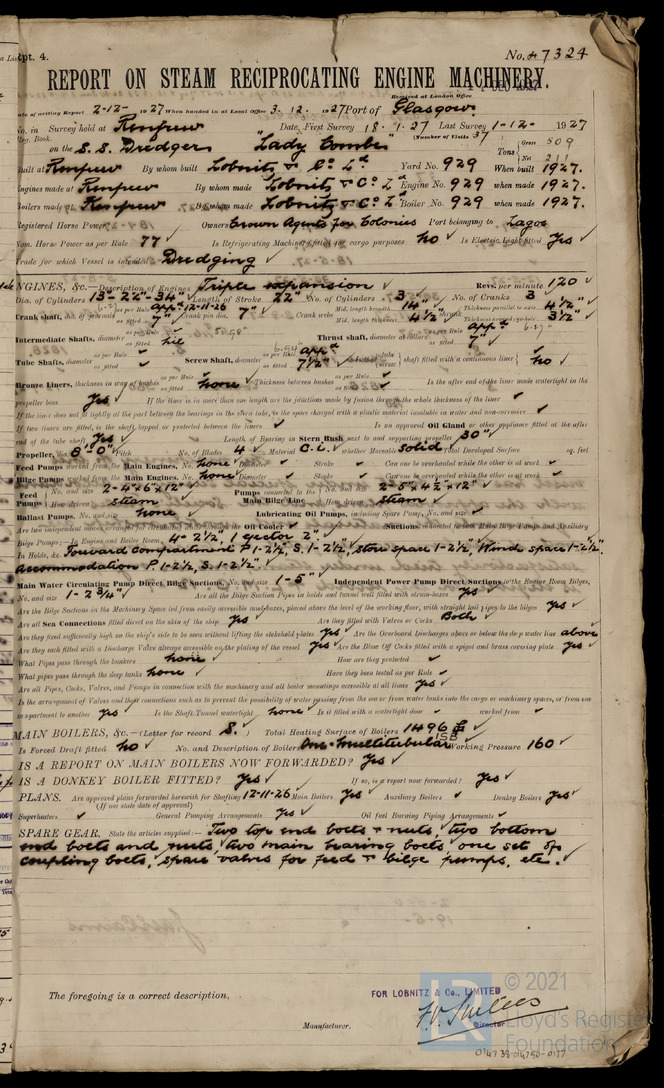 Rpt. 4.
No. 47324
REPORT ON STEAM RECIPROCATING ENGINE MACHINERY.
Received at London Office
Date of writing Report 2-12- 1927 When handed in at Local Office 3. 12. 1927 Port of Glasgow.
No. in Survey held at Renfrew Date, First Survey 18. 1. 27 Last Survey 1-12- 1927
Reg. Book. (Number of Visits 37)
on the S.S. Dredger "Lady Combes" Tons Gross 509
Net 211
Built at Renfrew By whom built Lobnitz & Co. Ld Yard No. 929 When built 1927.
Engines made at Renfrew By whom made Lobnitz & Co. Ld Engine No. 929 when made 1927.
Boilers made at Renfrew By whom made Lobnitz & Co. Ld Boiler No. 929 when made 1927.
Registered Horse Power Owners Crown Agents for Colonies Port belonging to Lagos
Nom. Horse Power as per Rule 77 Is Refrigerating Machinery fitted for cargo purposes No Is Electric Light fitted Yes
Trade for which Vessel is intended Dredging
ENGINES, &c.—Description of Engines Triple expansion Revs. per minute 120
Dia. of Cylinders 13"-22"-34" Length of Stroke 22" No. of Cylinders 3 No. of Cranks 3
Crank shaft, dia. of journals as per Rule appd 12-11-26 as fitted 7" Crank pin dia. 7" Crank webs Mid. length breadth 14" Thickness parallel to axis 4½"
Mid. length thickness 4½" Thickness around eye-hole 3½"
Intermediate Shafts, diameter as per Rule as fitted nil Thrust shaft, diameter at collars as per Rule appd as fitted 7"
Tube Shafts, diameter as per Rule as fitted Screw Shaft, diameter as per Rule appd as fitted 7½" Is the tube screw shaft fitted with a continuous liner No
Bronze Liners, thickness in way of bushes as per Rule as fitted none Thickness between bushes as per Rule as fitted Is the after end of the liner made watertight in the
propeller boss Yes If the liner is in more than one length are the junctions made by fusion through the whole thickness of the liner
If the liner does not fit tightly at the part between the bearings in the stern tube, is the space charged with a plastic material insoluble in water and non-corrosive
If two liners are fitted, is the shaft lapped or protected between the liners Is an approved Oil Gland or other appliance fitted at the after
end of the tube shaft Yes Length of Bearing in Stern Bush next to and supporting propeller 30"
Propeller, dia. 8'-0" Pitch No. of Blades 4 Material C.I. whether Moveable Solid Total Developed Surface sq. feet
Feed Pumps worked from the Main Engines, No. none Diameter Stroke Can one be overhauled while the other is at work
Bilge Pumps worked from the Main Engines, No. none Diameter Stroke Can one be overhauled while the other is at work
Feed Pumps No. and size 2-4"x6"x12" Pumps connected to the Main Bilge Line No. and size 2-5"x4½"x12"
How driven steam How driven steam
Ballast Pumps, No. and size none Lubricating Oil Pumps, including Spare Pump, No. and size
Are two independent means arranged for circulating water through the Oil Cooler Suctions, connected to both Main Bilge Pumps and Auxiliary
Bilge Pumps;—In Engine and Boiler Room 4-2½", 1 ejector 2".
In Holds, &c. Forward compartment P. 1-2½, S. 1-2½", store space 1-2½", Wind space 1-2½".
Accommodation P. 1-2½, S. 1-2½".
Main Water Circulating Pump Direct Bilge Suctions, No. and size 1-5" Independent Power Pump Direct Suctions to the Engine Room Bilges,
No. and size 1-2¾" Are all the Bilge Suction Pipes in holds and tunnel well fitted with strum-boxes Yes
Are the Bilge Suctions in the Machinery Space led from easily accessible mud-boxes, placed above the level of the working floor, with straight tail pipes to the bilges yes
Are all Sea Connections fitted direct on the skin of the ship Yes Are they fitted with Valves or Cocks Both
Are they fixed sufficiently high on the ship's side to be seen without lifting the stokehold plates yes Are the Overboard Discharges above or below the deep water line above
Are they each fitted with a Discharge Valve always accessible on the plating of the vessel Yes Are the Blow Off Cocks fitted with a spigot and brass covering plate Yes
What Pipes pass through the bunkers none How are they protected
What pipes pass through the deep tanks none Have they been tested as per Rule
Are all Pipes, Cocks, Valves, and Pumps in connection with the machinery and all boiler mountings accessible at all times yes
Is the arrangement of Valves and their connections such as to prevent the possibility of water passing from the sea or from water tanks into the cargo or machinery spaces, or from one
compartment to another yes Is the Shaft Tunnel watertight none Is it fitted with a watertight door worked from
MAIN BOILERS, &c.—(Letter for record S.) Total Heating Surface of Boilers 1496
Is Forced Draft fitted No No. and Description of Boilers One-Multitubular ISB Working Pressure 160
IS A REPORT ON MAIN BOILERS NOW FORWARDED? Yes
IS A DONKEY BOILER FITTED? Yes If so, is a report now forwarded? Yes
PLANS. Are approved plans forwarded herewith for Shafting 12-11-26 Main Boilers Yes Auxiliary Boilers Donkey Boilers Yes
(If not state date of approval)
Superheaters General Pumping Arrangements Yes Oil fuel Burning Piping Arrangements
SPARE GEAR. State the articles supplied:— Two top end bolts & nuts, two bottom
end bolts and nuts, two main bearing bolts, one set of
coupling bolts, spare valves for feed & bilge pumps, etc.
The foregoing is a correct description,
FOR LOBNITZ & Co., LIMITED
Director
Manufacturer.
© 2021
Lloyd's Register
Foundation